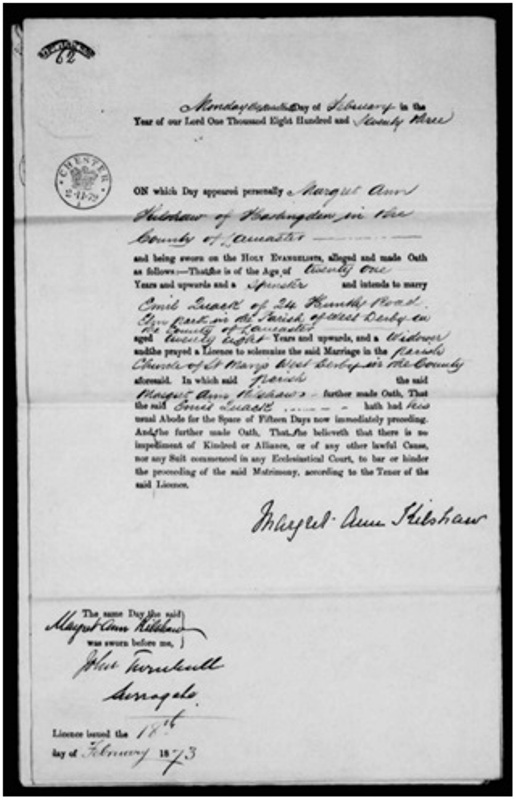 62
CHESTER
Monday Day of February in the
Year of our Lord One Thousand Eight Hundred and Seventy three
ON which Day appeared personally Margret Ann
Kilshaw of Haslingden in the
County of Lancaster
and being sworn on the HOLY EVANGELISTS, alleged and made Oath
as follows:—That she is of the Age of twenty one
Years and upwards and a Spinster and intends to marry
Emil Quack of 24 Road
Elm Park in the Parish of West Derby in
the County of Lancaster
aged twenty eight Years and upwards, and a Widower
and she prayed a Licence to solemnize the said Marriage in the Parish
Church of St Mary West Derby in the County
aforesaid. In which said Parish the said
Margret Ann Kilshaw further made Oath, That
the said Emil Quack hath had his
usual Abode for the Space of Fifteen Days now immediately preceding.
And she further made Oath, That she believeth that there is no
impediment of Kindred or Alliance, or of any other lawful Cause,
nor any Suit commenced in any Ecclesiastical Court, to bar or hinder
the proceeding of the said Matrimony, according to the Tenor of the
said Licence.
Margret Ann Kilshaw
The same Day the said
Margret Ann Kilshaw
was sworn before me,
John Turnbull
Surrogate
Licence issued the 18th
day of February 1873